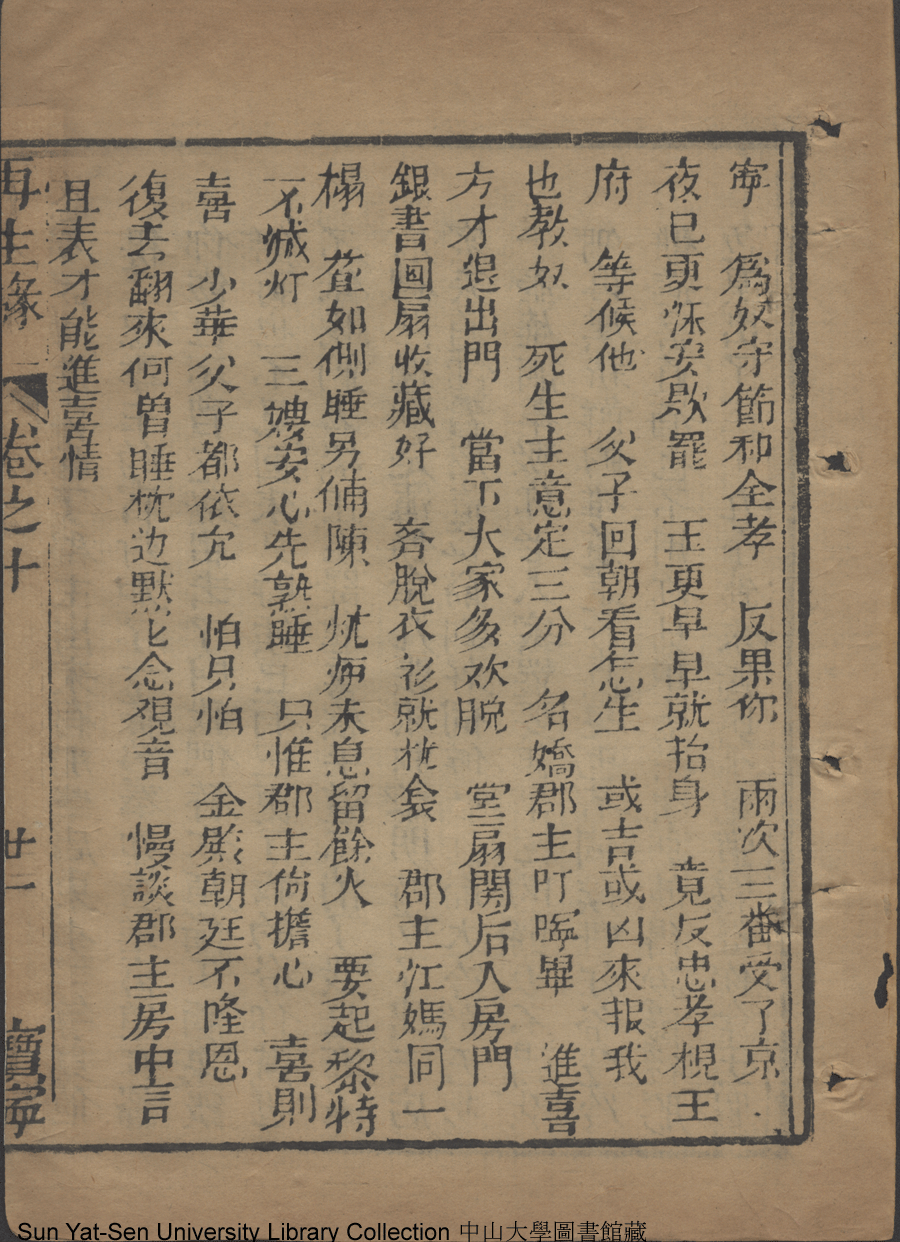 寧 爲奴守節和全孝 反果你 兩次三畨受了京
夜已更深安歇罷 五更早早就抬身 竟反忠孝梘王
府 等候他 父子回朝看怎生 或吉或凶來报我
也教奴 死生主意定三分 名嬌郡主叮嚀畢 進喜
方才退出門 當下大家多欢脫 堂扇関后入房門
銀書囬扇收藏好 吝脫衣衫就枕衾 郡主江媽同一
榻 苴如側睡另俻陳 炕炉未息留餘火 要起黎特
不减灯 三娉安心先熟睡 只惟郡主倘擔心 喜則
喜 少華父子都依允 怕只怕 金殿朝廷不隆恩
復去翻來何曽睡枕边默匕念覌音 慢談郡主房中言
且表才能進喜情
再生緣 卷之十 廿一 寶寧
Sun Yat-Sen University Library Collection 中山大學圖書館藏